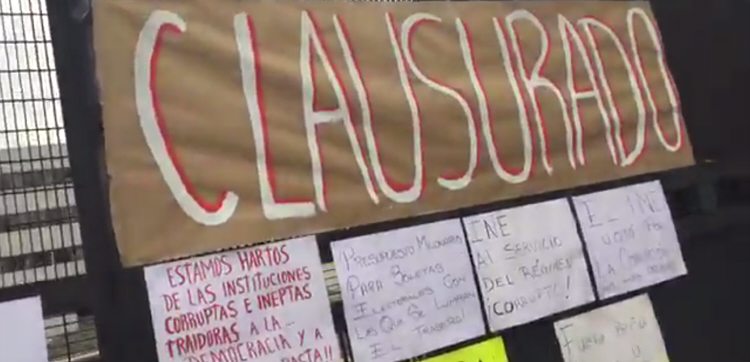 CLAUSURADO
ESTAMOS HARTOS
DE LAS INSTITUCIONES
CORRUPTAS E INEPTAS
TRAIDORAS A LA...
DEMOCRACIA Y A
¡PRESUPUESTO MILLONARIO
PARA BOLETAS
ELECTORALES CON
LAS QUE SE LIMPIARAN
EL TRASERO!
INE
AL SERVICIO
DEL RÉGIMEN
¡CORRUPTO!
EL INE
LA